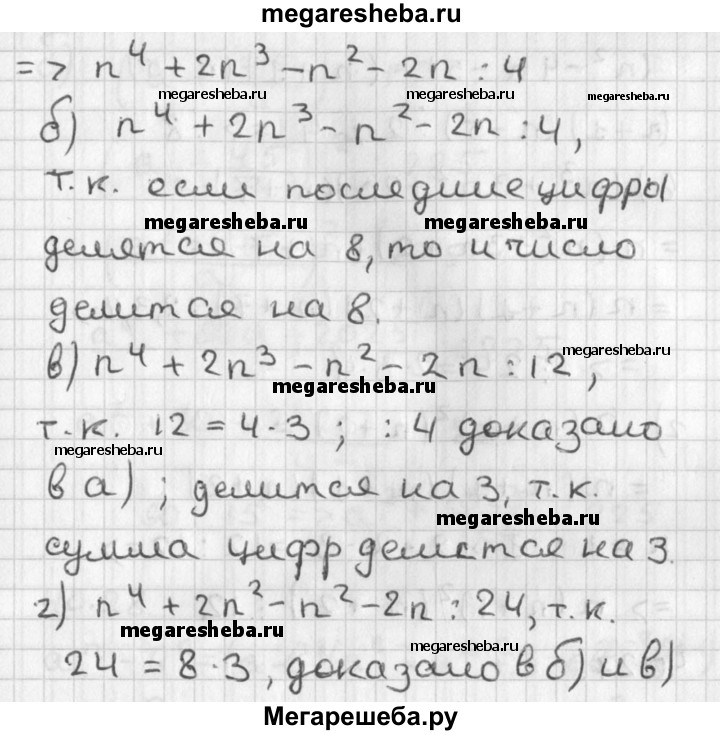 megaresheba.ru
=> n⁴ + 2n³ - n² - 2n : 4
megaresheba.ru megaresheba.ru megaresheba.ru
б) n⁴ + 2n³ - n² - 2n : 4,
т.к. если последние цифры
megaresheba.ru megaresheba.ru
делятся на 8, то и число
делится на 8.
megaresheba.ru
в) n⁴ + 2n³ - n² - 2n : 12,
megaresheba.ru
т.к. 12 = 4·3 ; : 4 доказано
megaresheba.ru
в а) ; делится на 3, т.к.
megaresheba.ru
сумма цифр делится на 3.
г) n⁴ + 2n² - n² - 2n : 24, т.к.
megaresheba.ru megaresheba.ru
24 = 8·3, доказано в б) и в)
Мегарешеба.ру